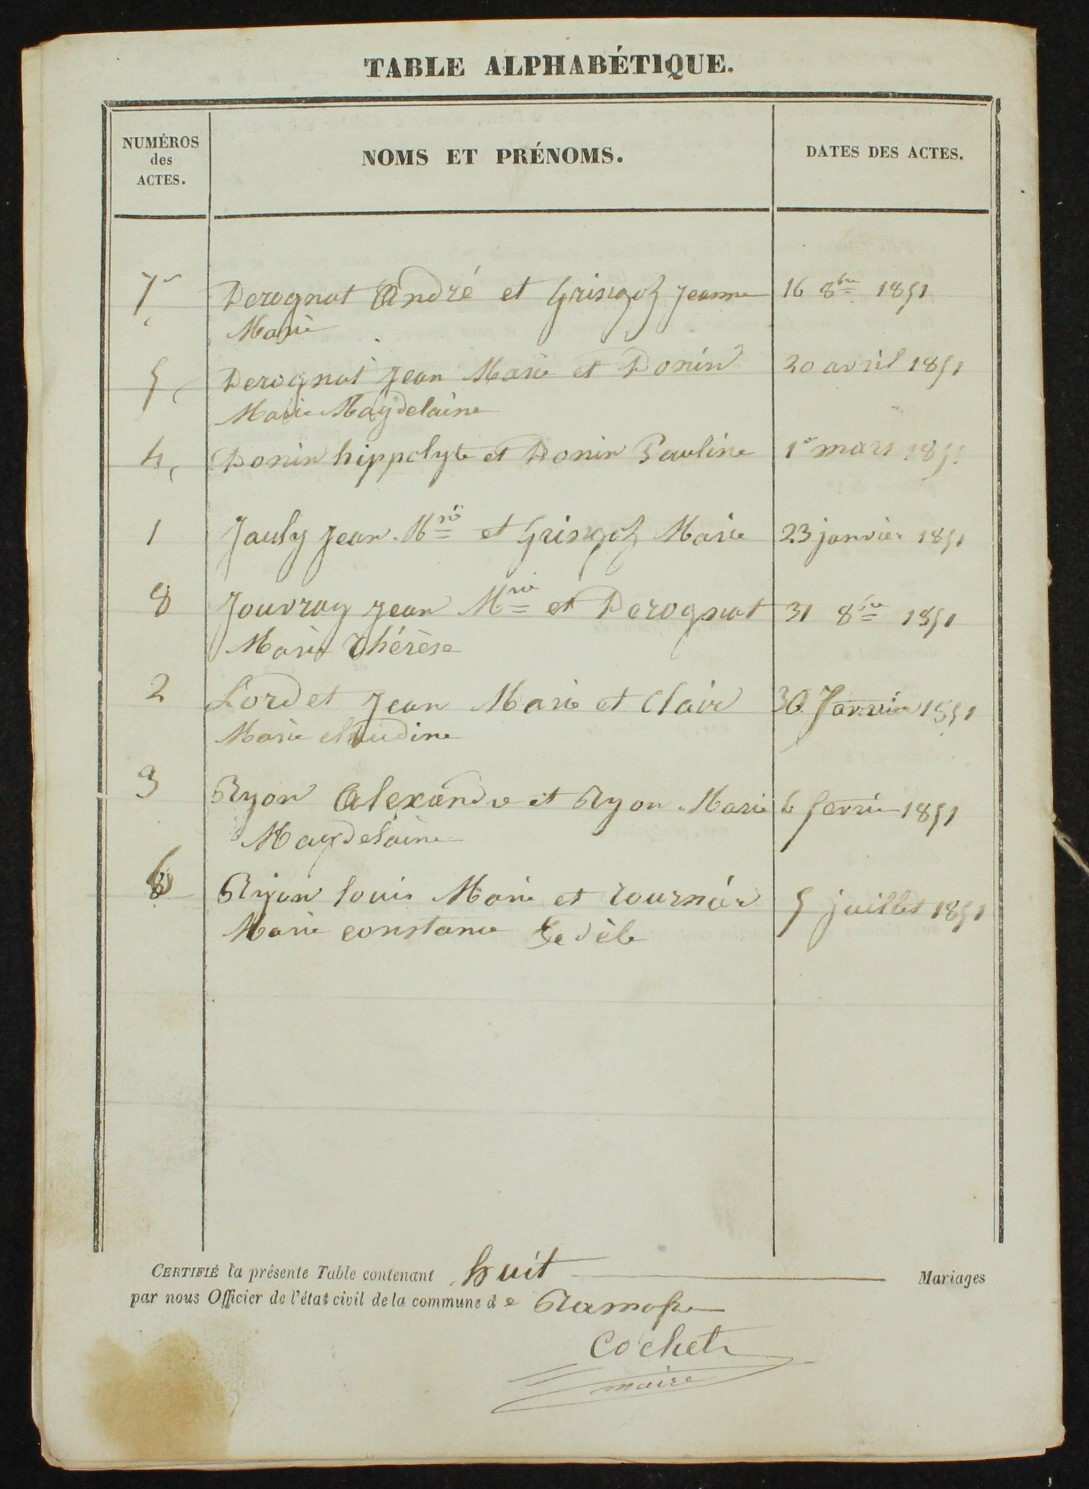 TABLE ALPHABÉTIQUE.
NUMÉROS
des
ACTES.
NOMS ET PRÉNOMS.
DATES DES ACTES.
7 Derognat André et Grisgoz Jeanne 16 8bre 1851
Marie
5 Derognat Jean Marie et Donin 20 avril 1851
Marie Magdelaine
4 Donin hippolyte et Donin Pauline 1er mars 1851
1 Jauly Jean Mrie et Grisgoz Marie 23 janvier 1851
8 Jouvray Jean Mrie et Derognat 31 8bre 1851
Marie Thérèse
2 Lordet Jean Marie et Clair 30 Janvier 1851
Marie Claudine
3 Ryon Alexandre et Ryon Marie 6 fevrier 1851
Magdelaine
6 Ryon Louis Marie et tournier 5 juillet 1851
Marie constance
CERTIFIÉ la présente Table contenant huit Mariages
par nous Officier de l'état civil de la commune de Ramasse
Cochet
maire